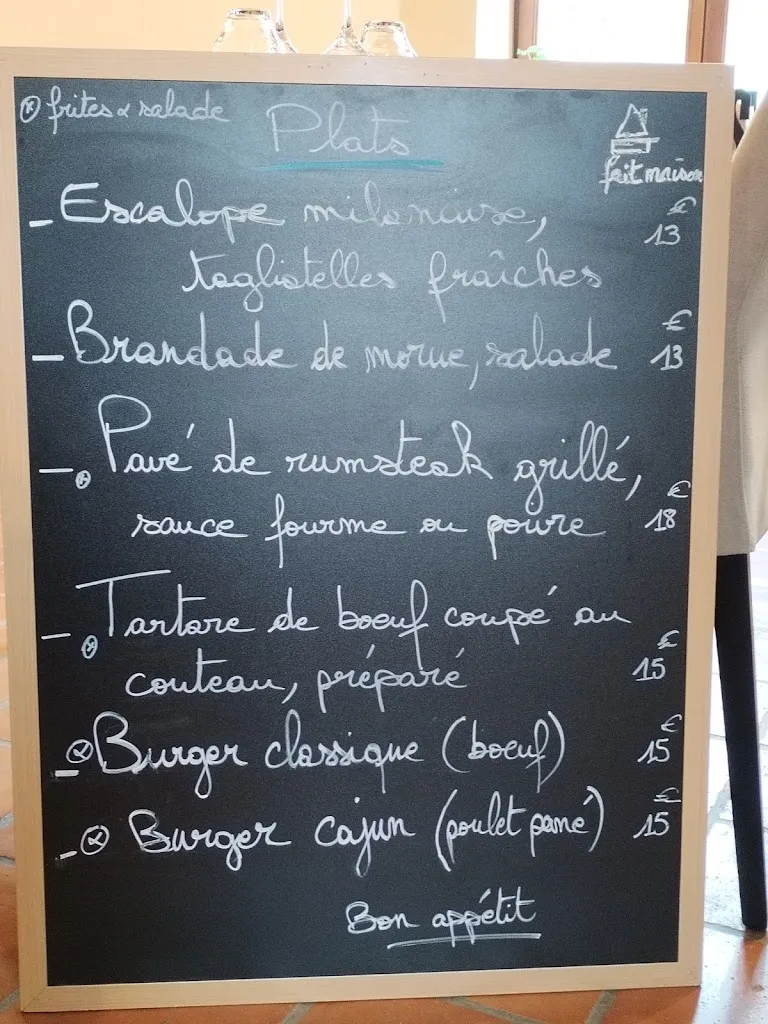 ⓧ frites & salade
Plats
fait maison
- Escalope milanaise,
tagliatelles fraîches
€
13
- Brandade de morue, salade
€
13
- ⓧ Pavé de rumsteak grillé,
sauce fourme ou poivre
€
18
- ⓧ Tartare de boeuf coupé au
couteau, préparé
€
15
- ⓧ Burger classique (boeuf)
€
15
- ⓧ Burger cajun (poulet pané)
€
15
Bon appétit